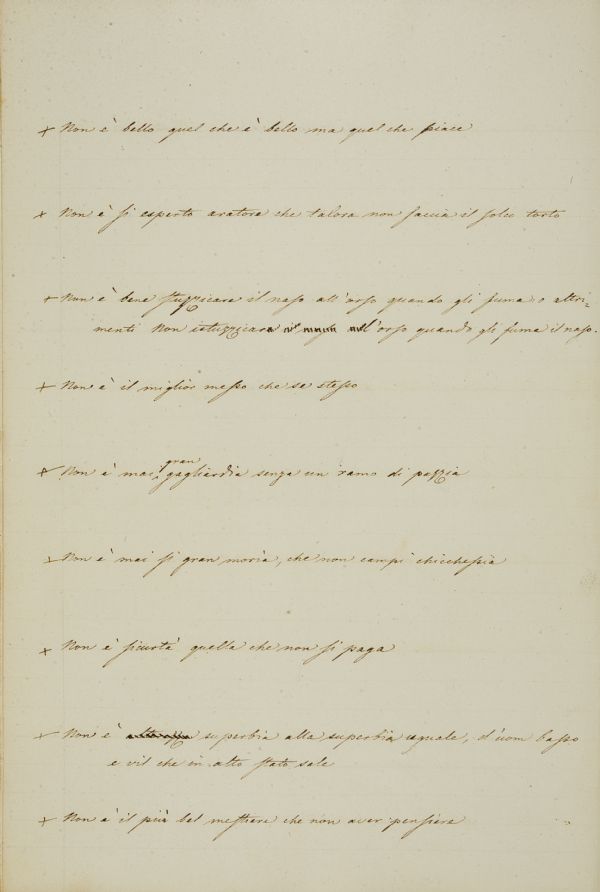 × Non è bello quel che è bello ma quel che piace
× Non è sì esperto aratore che talora non faccia il solco torto
× Non è bene stuzzicare il naso all'orso quando gli fuma o altri-
menti Non istuzzicare all'orso quando gli fuma il naso.
× Non è il miglior messo che se stesso
gran
× Non è mai gagliardia senza un ramo di pazzia
× Non è mai sì gran morìa, che non campi chicchessia
× Non è sicurtà quella che non si paga
× Non è altezza superbia alla superbia uguale, d'uom basso
e vil che in alto stato sale
× Non è il più bel mestiere che non aver pensiere